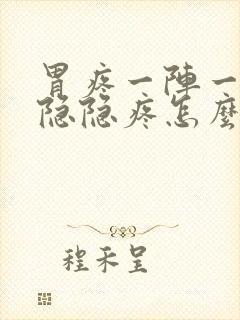 胃疼一陣一
隐隐疼怎麽
程禾呈